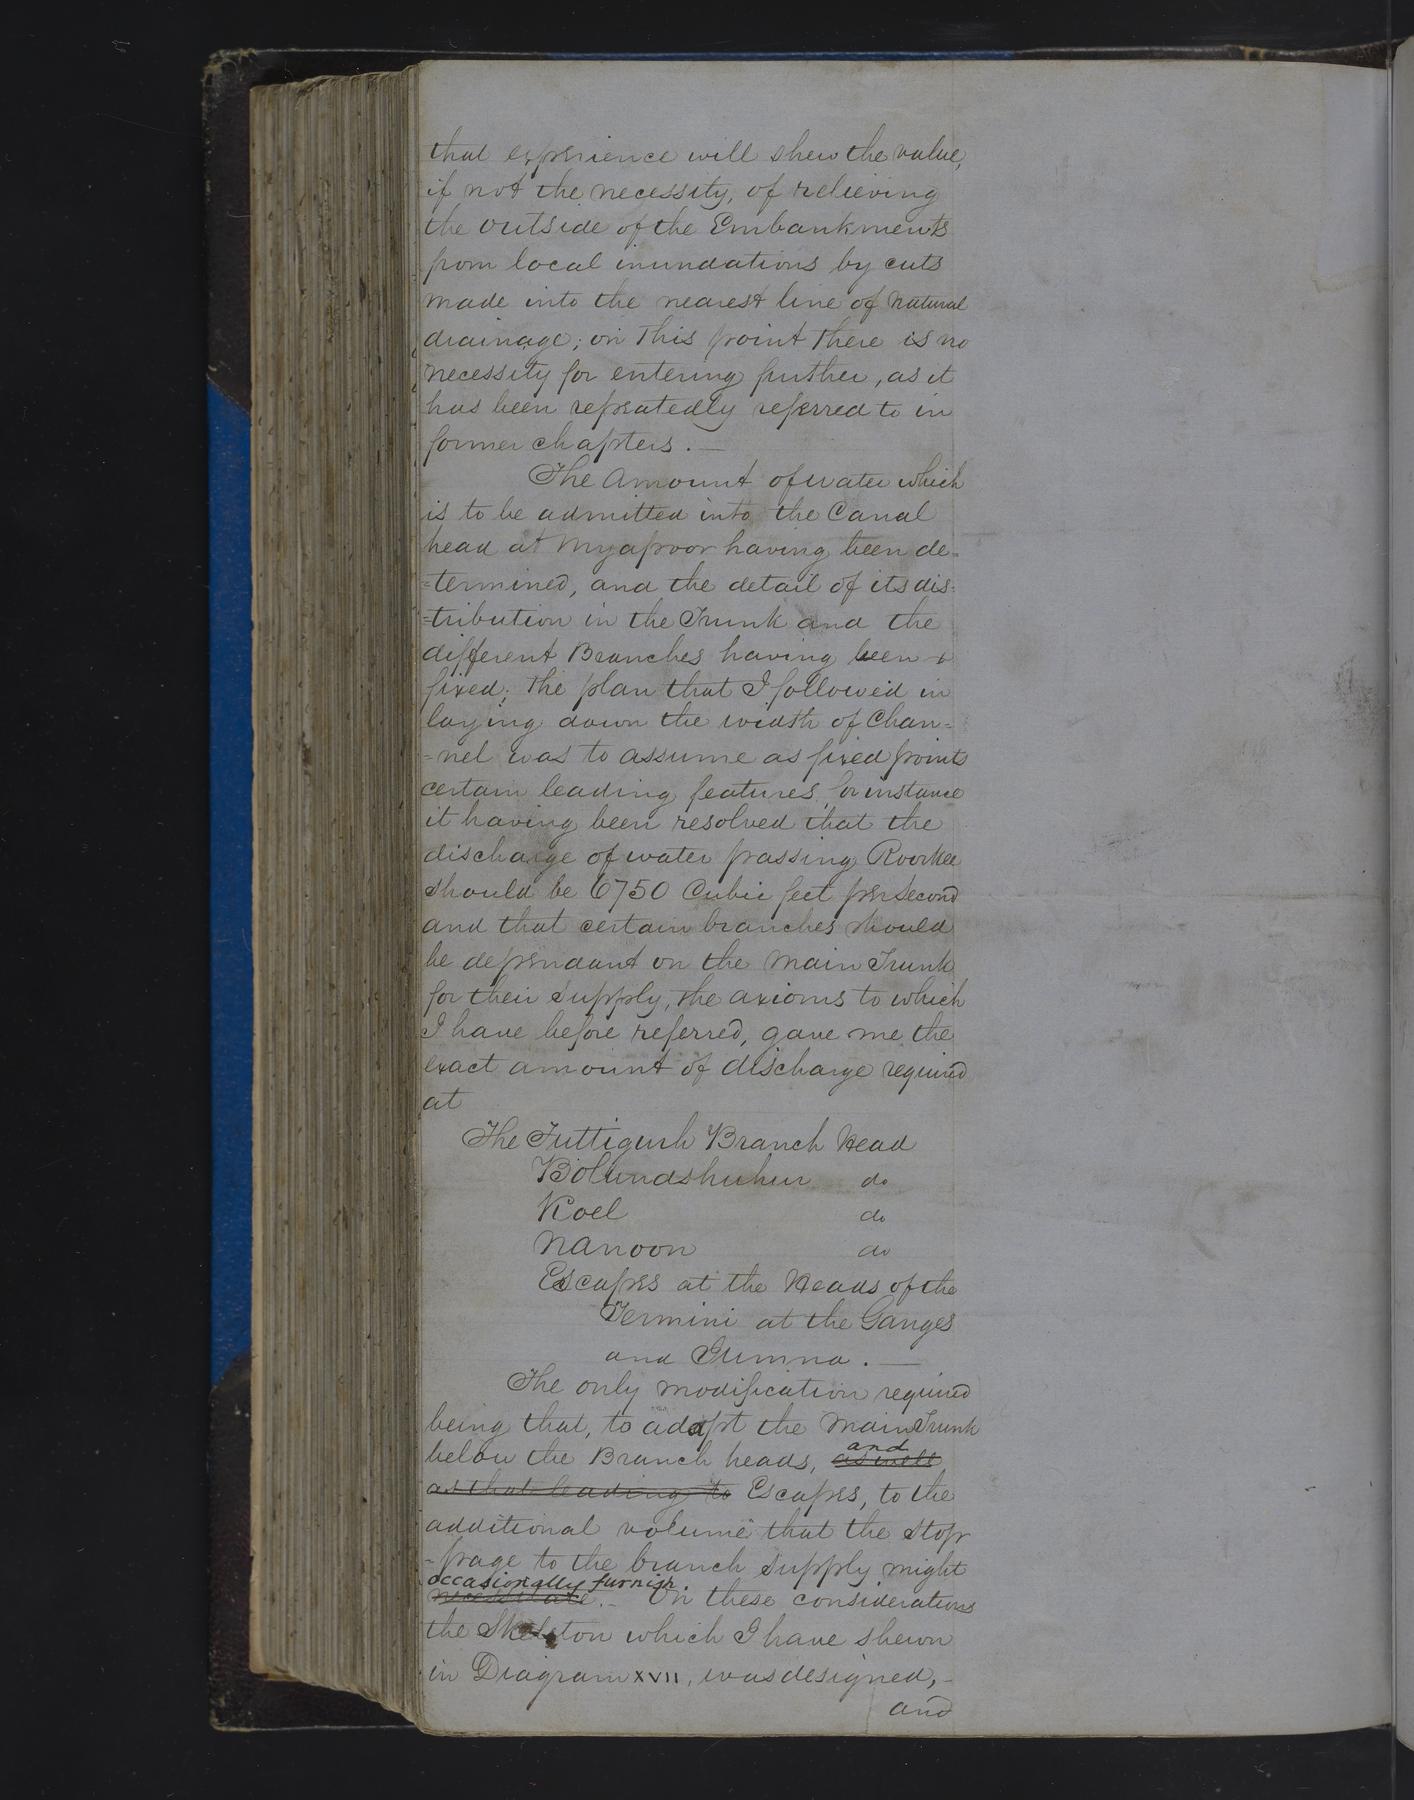 that experience will shew the value,
if not the necessity, of relieving
the outside of the Embankments
from local inundations by cuts
made into the nearest line of natural
drainage; on this point there is no
necessity for entering further, as it
has been repeatedly referred to in
former chapters. —
The amount of water which
is to be admitted into the Canal
head at Myapoor having been de=
=termined, and the detail of its dis=
=tribution in the Trunk and the
different Branches having been
fixed; the plan that I followed in
laying down the width of Chan=
=nel was to assume as fixed points
certain leading features, for instance
it having been resolved that the
discharge of water passing Roorkee
should be 6750 Cubic feet per second
and that certain branches should
be dependant on the Main Trunk
for their supply, the axioms to which
I have before referred, gave me the
exact amount of discharge required
at
The Futtigurh Branch Head
Bolundshuhur do
Koel do
Nanoon do
Escapes at the Heads of the
Termini at the Ganges
and Jumna. —
The only modification required
being that, to adapt the Main Trunk
below the Branch heads, as well and
as that leading to Escapes, to the
additional volume that the stop
-page to the branch supply might
occasionally furnish.
necessitate. - On these considerations
the Skeleton which I have shewn
in Diagram XVII, was designed, -
and